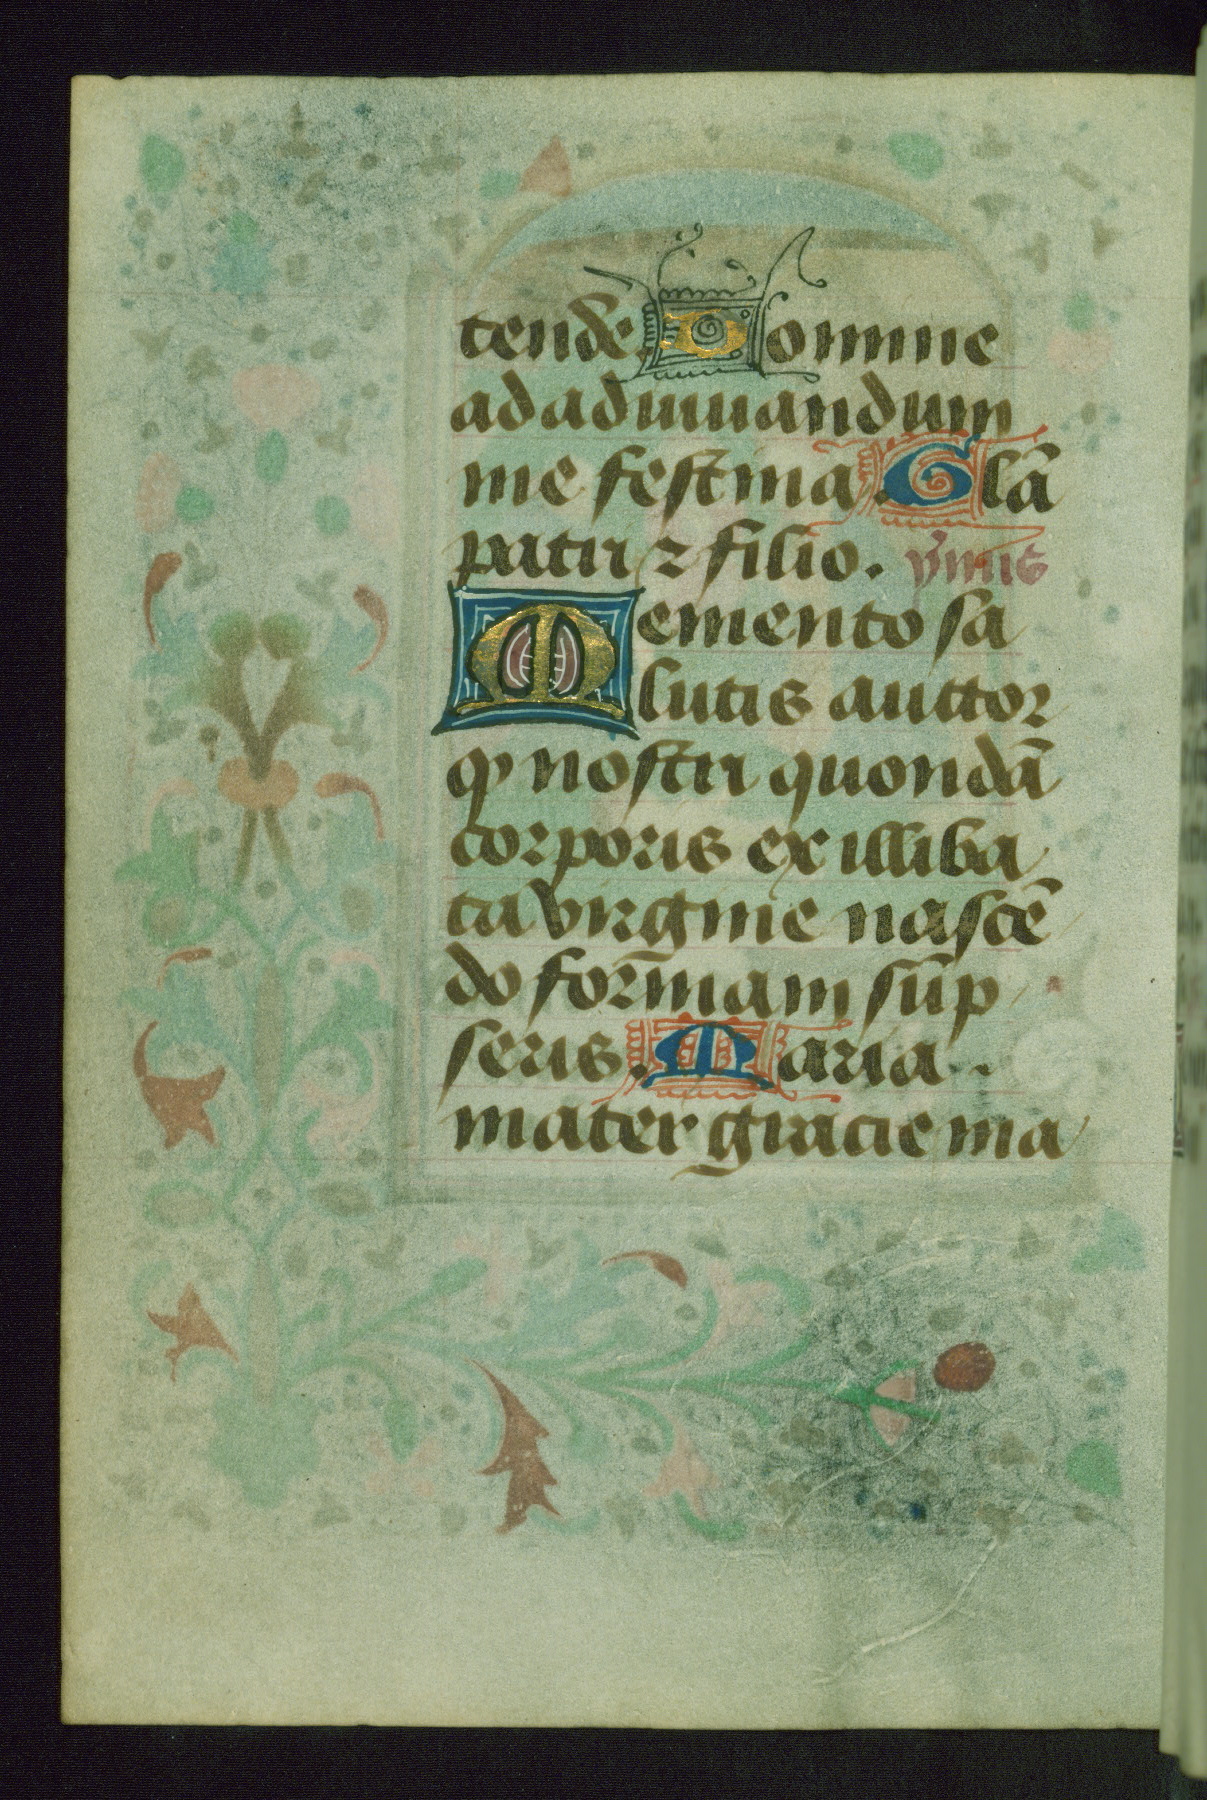 tende. Domine
ad adiuuandum
me festina. Glã
patri ⁊ filio. ymnꝯ
Memento sa
lutis auctor
qꝫ nostri quondã
corporis ex illiba
ta virgine nascẽ
do formam sũp
seris. Maria
mater gracie ma